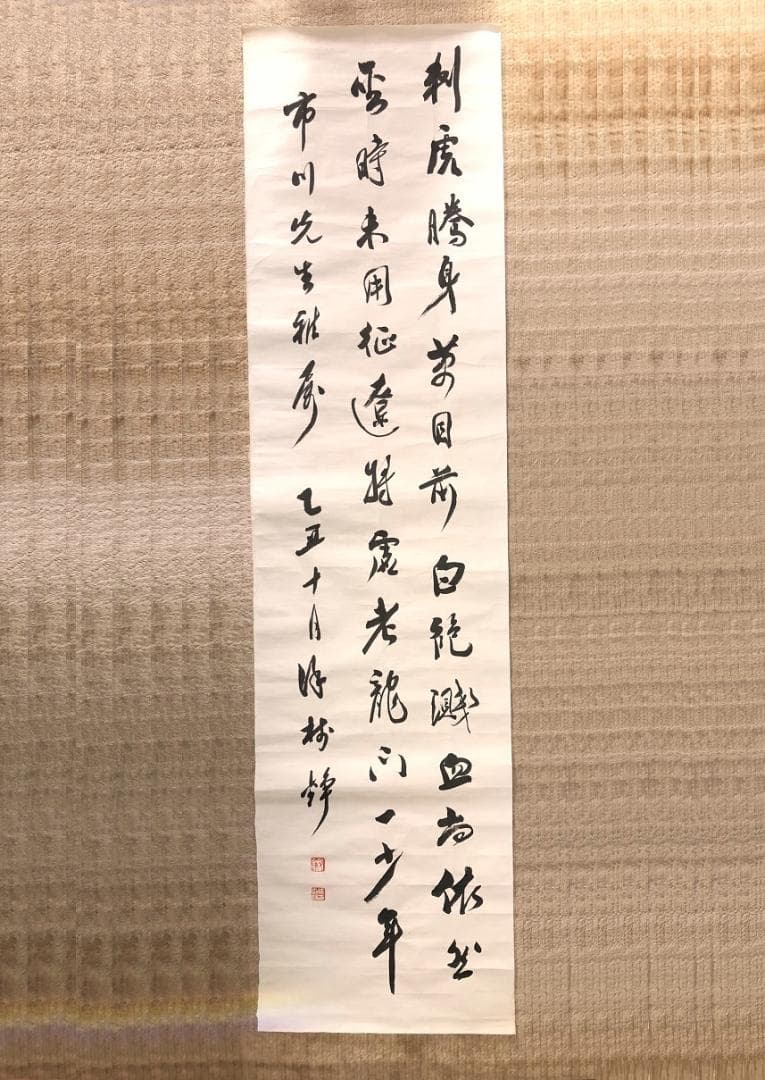 刺虎騰身萬目前白袍濺血尚依然
聖時未用征遼將虛老龍門一少年
市川先生雅屬 乙丑十月徐樹錚